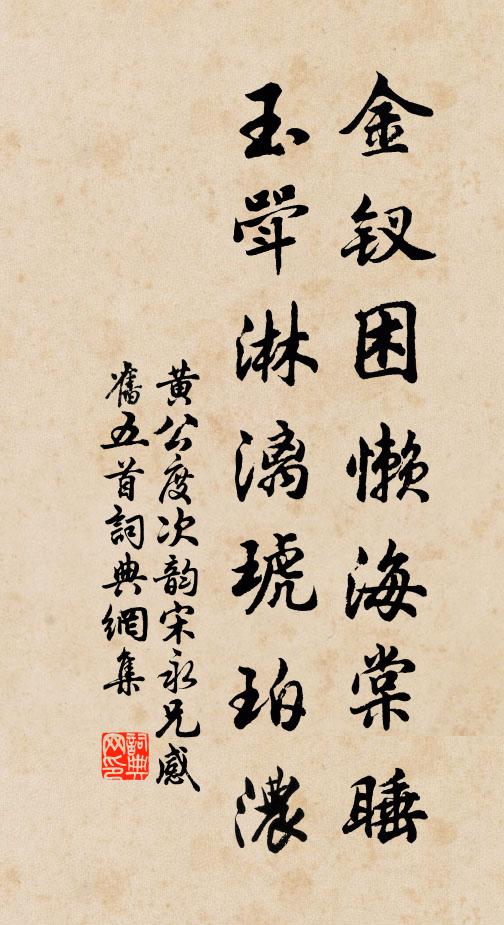 金钗困懒海棠睡
玉斝淋漓琥珀濃
黄公度次韵宋永兄感
舊五首詞典網集
詞典
网印